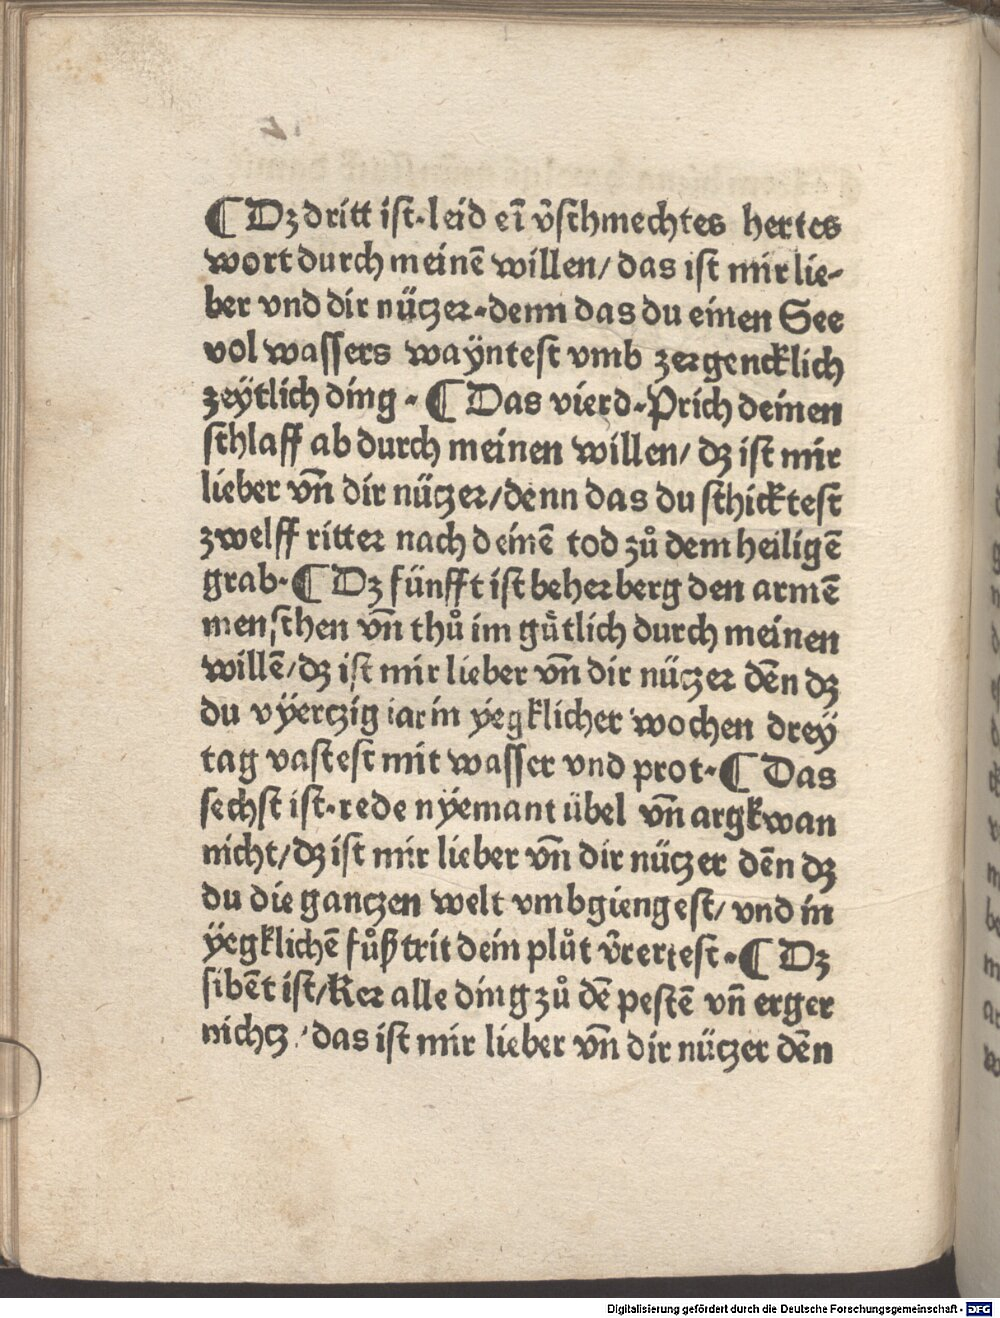 ¶ Dz dritt ist·leid eī v̄schmechtes hertes
wort durch meinē willen/ das ist mir lie⸗
ber vnd dir nützer·denn das du einen See
vol wassers wayͤntest vmb zergencklich
zeÿtlich ding · ¶ Das vierd·Prich deinen
schlaff ab durch meinen willen/ dz ist mir
lieber vn̄ dir nützer/denn das du schicktest
zwelff ritter nach deinē tod zuͦ dem heiligē
grab·¶ Dz fünfft ist beherberg den armē
menschen vn̄ thuͦ im guͤtlich durch meinen
willē/dz ist mir lieber vn̄ dir nützer dēn dz
du vÿertzig iar in ÿegklicher wochen dreÿ
tag vastest mit wasser vnd prot·¶ Das
sechst ist·rede nÿemant übel vn̄ argkwan
nicht/dz ist mir lieber vn̄ dir nützer dēn dz
du die gantzen welt vmbgiengest/ vnd in
ÿegklichē fuͦßtrit dein pluͦt v̄rertest·¶ Dz
sibēt ist/Ker alle ding zuͦ dē pestē vn̄ erger
nichtz/ das ist mir lieber vn̄ dir nützer dēn
Digitalisierung gefördert durch die Deutsche Forschungsgemeinschaft - DFG